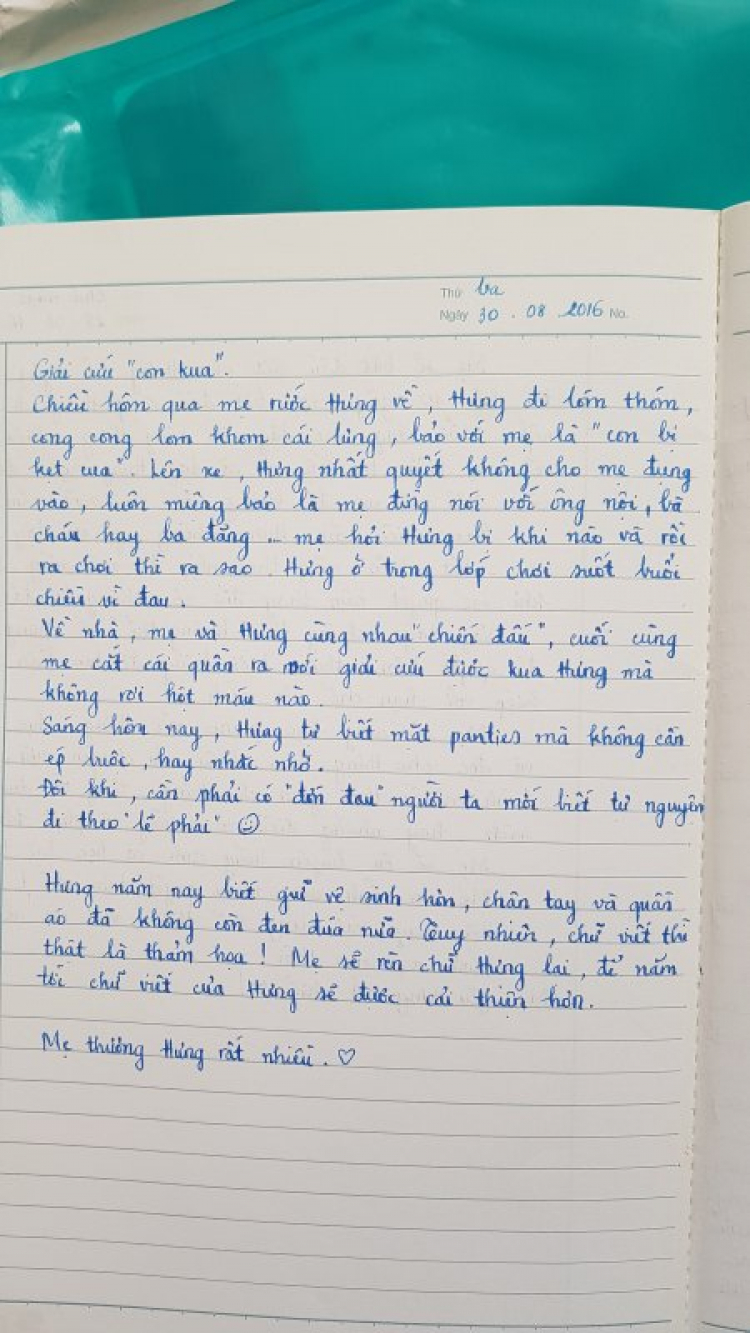 Thứ ba
Ngày 30 . 08 . 2016 No.
Giải cứu "con kua".
Chiều hôm qua mẹ rước Hưng về, Hưng đi lóm thóm,
cong cong lom khom cái lưng, bảo với mẹ là "con bị
kẹt cua". Lên xe, Hưng nhất quyết không cho mẹ đụng
vào, luôn miệng bảo là mẹ đừng nói với ông nội, bà
cháu hay ba đăng ... mẹ hỏi Hưng bị khi nào và rồi
ra chơi thì ra sao. Hưng ở trong lớp chơi suốt buổi
chiều vì đau.
Về nhà, mẹ và Hưng cùng nhau "chiến đấu", cuối cùng
mẹ cắt cái quần ra mới giải cứu được kua Hưng mà
không rơi hột máu nào.
Sáng hôm nay, Hưng tự biết mặt panties mà không cần
ép buộc, hay nhắc nhở.
Đôi khi, cần phải có "đớn đau" người ta mới biết tự nguyện
đi theo "lẽ phải" ☺
Hưng năm nay biết giữ vệ sinh hơn, chân tay và quần
áo đã không còn đen đúa nữa. Tuy nhiên, chữ viết thì
thật là thảm họa! Mẹ sẽ rèn chữ Hưng lại, để năm
tới chữ viết của Hưng sẽ được cải thiện hơn.
Mẹ thương Hưng rất nhiều. ♡